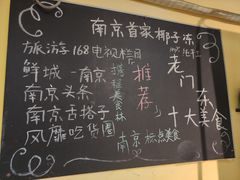 南京首家椰子冻
旅游168电视栏目
鲜城-南京
携程美食林
推荐
南京头条
南京吉搭子
风靡吃货圈
南京标点美食
老门东
十大美食